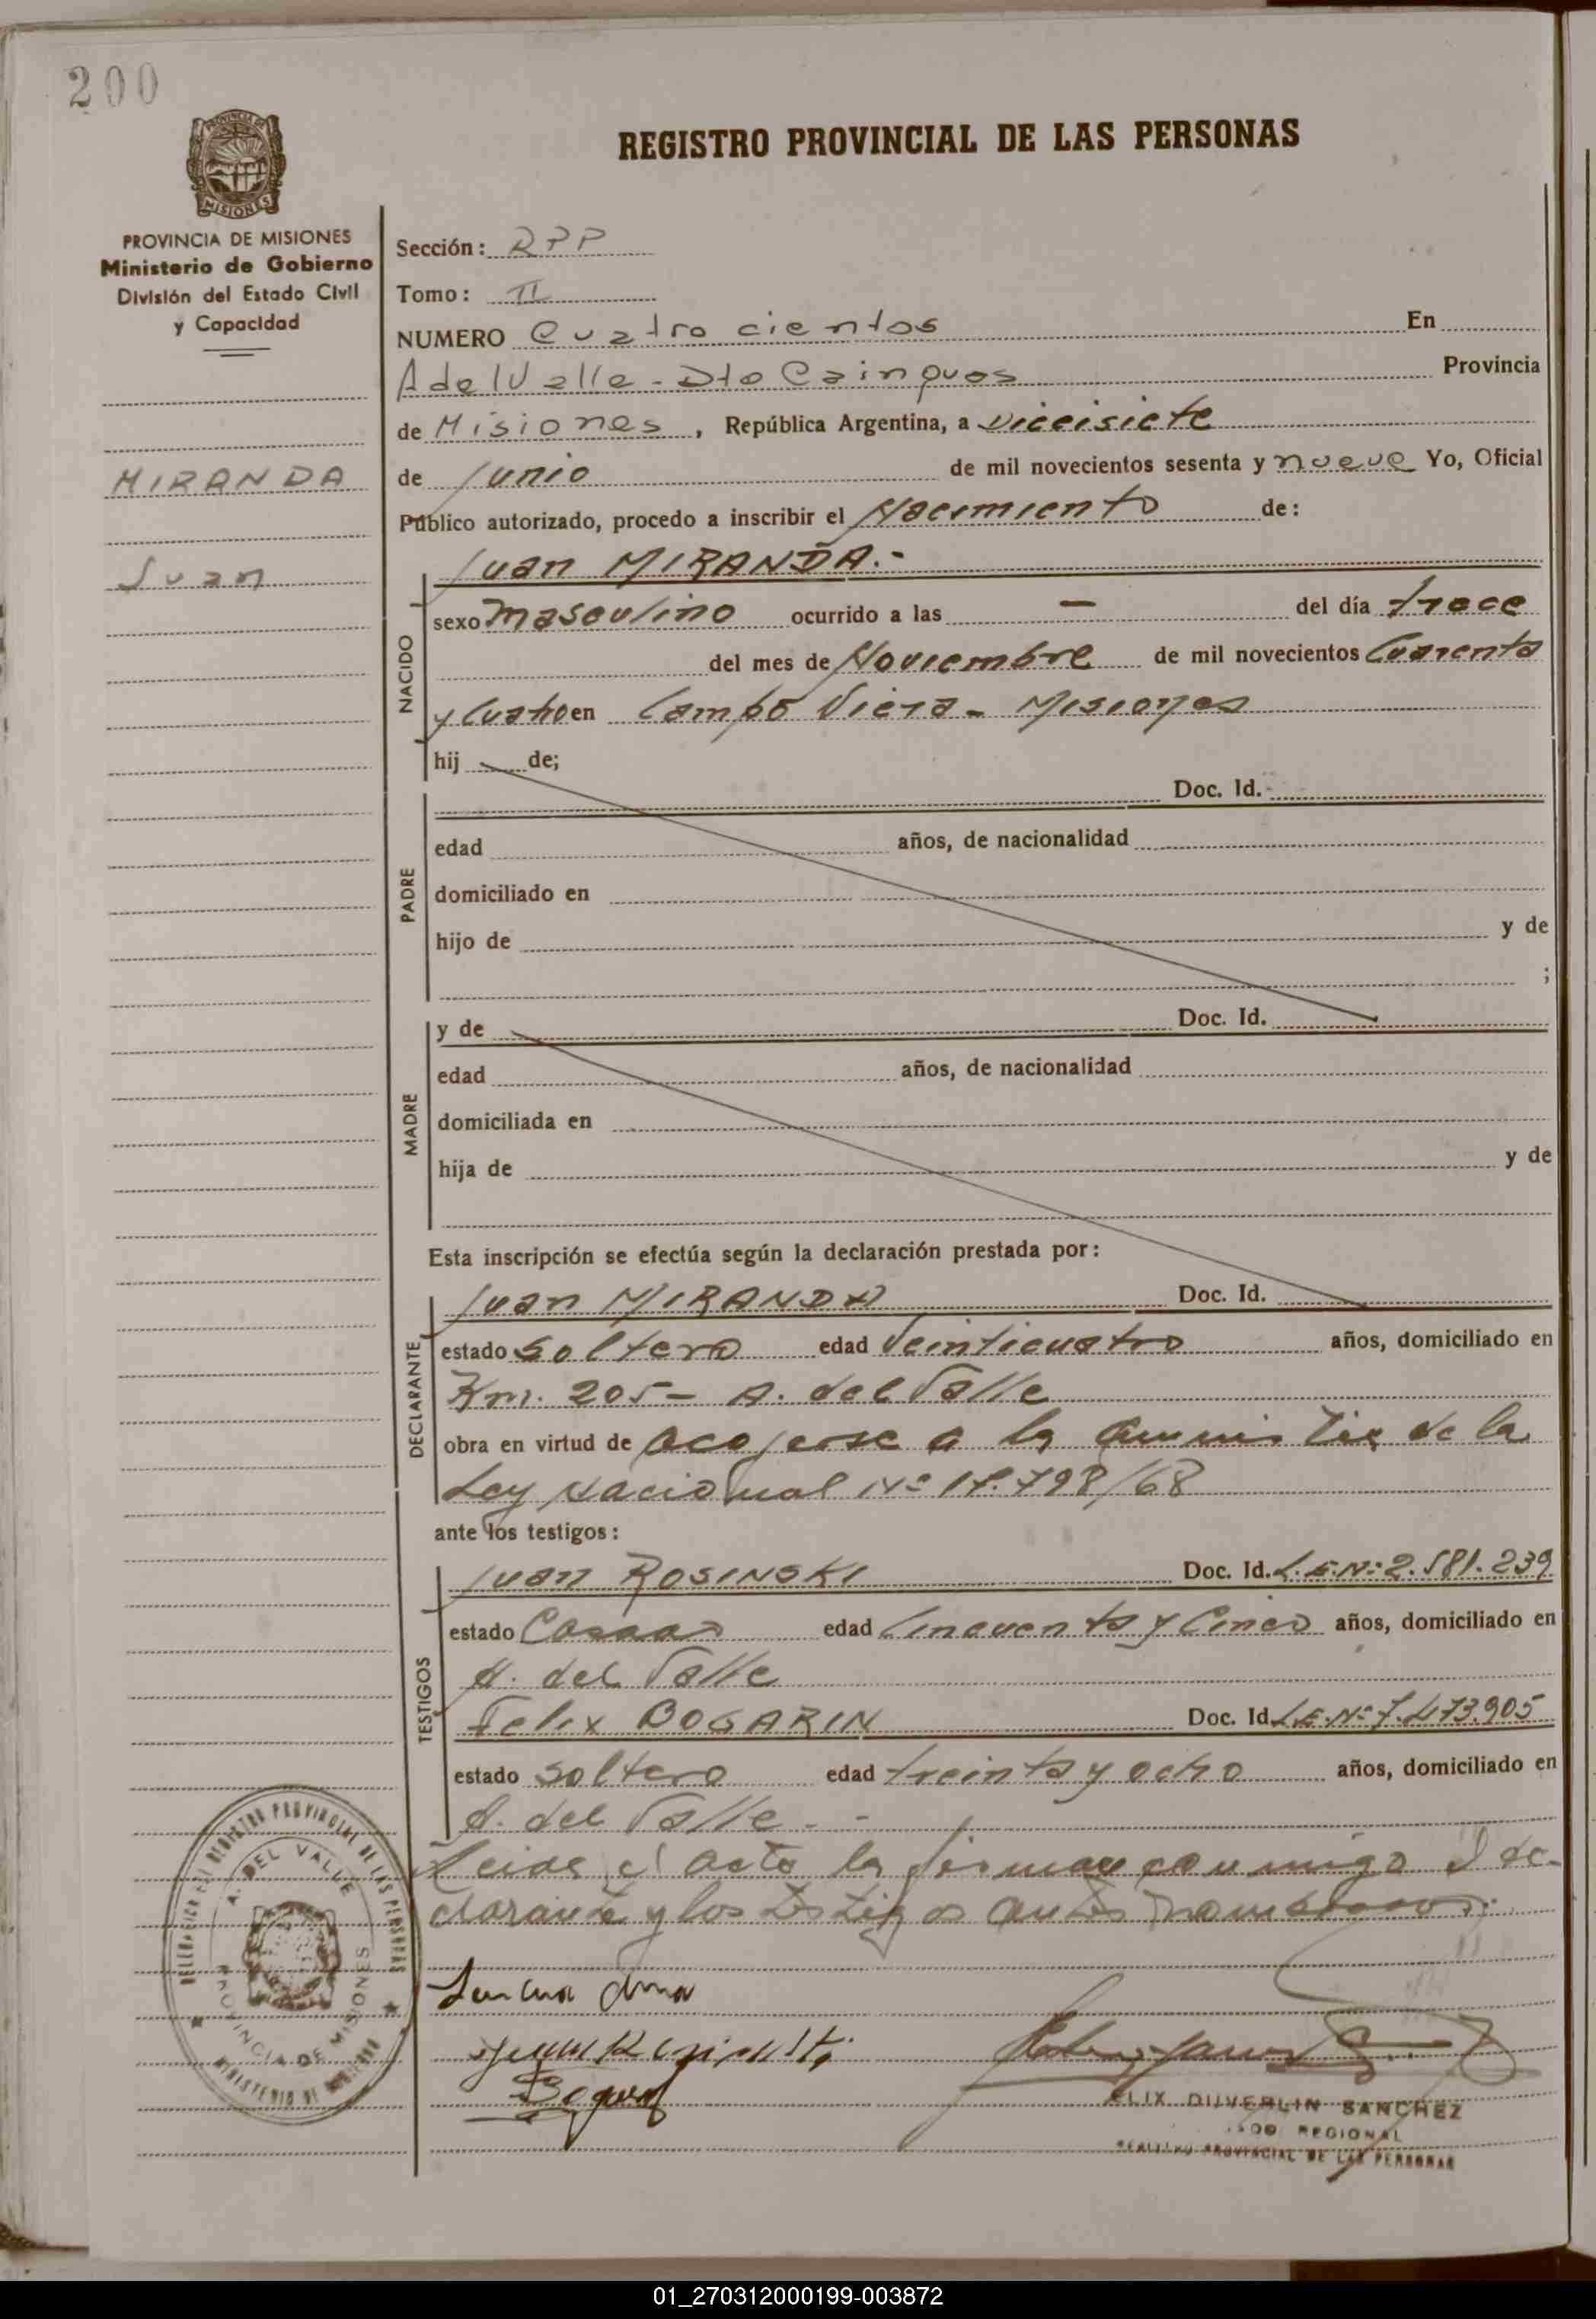 200
REGISTRO PROVINCIAL DE LAS PERSONAS
MISIONES
PROVINCIA DE MISIONES
Ministerio de Gobierno
División del Estado Civil
y Capacidad
MIRANDA
Juan
Sección: RPP
Tomo: II
NUMERO Cuatro cientos En
A del Valle - Dto Cainguas Provincia
de Misiones, República Argentina, a diecisiete
de Junio de mil novecientos sesenta y nueve Yo, Oficial
Público autorizado, procedo a inscribir el Nacimiento de:
Juan MIRANDA.-
NACIDO
sexo masculino ocurrido a las — del día trece
del mes de Noviembre de mil novecientos Cuarenta
y Cuatro en Campo Viera - Misiones
hij de;
PADRE
Doc. Id.
edad años, de nacionalidad
domiciliado en
hijo de y de
;
MADRE
y de Doc. Id.
edad años, de nacionalidad
domiciliada en
hija de y de
Esta inscripción se efectúa según la declaración prestada por:
DECLARANTE
Juan MIRANDA Doc. Id.
estado Soltero edad Veinticuatro años, domiciliado en
Km. 205 - A. del Valle
obra en virtud de acojerse a la amnistia de la
Ley Nacional Nº 17.798/68
ante los testigos:
TESTIGOS
Juan ROSINSKI Doc. Id. L.E.Nº 2.581.239
estado Casado edad Cincuenta y Cinco años, domiciliado en
A. del Valle
Felix BOGARIN Doc. Id. L.E.Nº 7.473.905
estado soltero edad treinta y ocho años, domiciliado en
A. del Valle. -
Leida el acta la firman conmigo el de-
clarante y los testigos antes nombrados.
DEL REGISTRO PROVINCIAL DE LAS PERSONAS
A. DEL VALLE
PROVINCIA DE MISIONES
MINISTERIO DE GOBIERNO
ELIX DUVERLIN SANCHEZ
REGIONAL
REGISTRO PROVINCIAL DE LAS PERSONAS
01_270312000199-003872